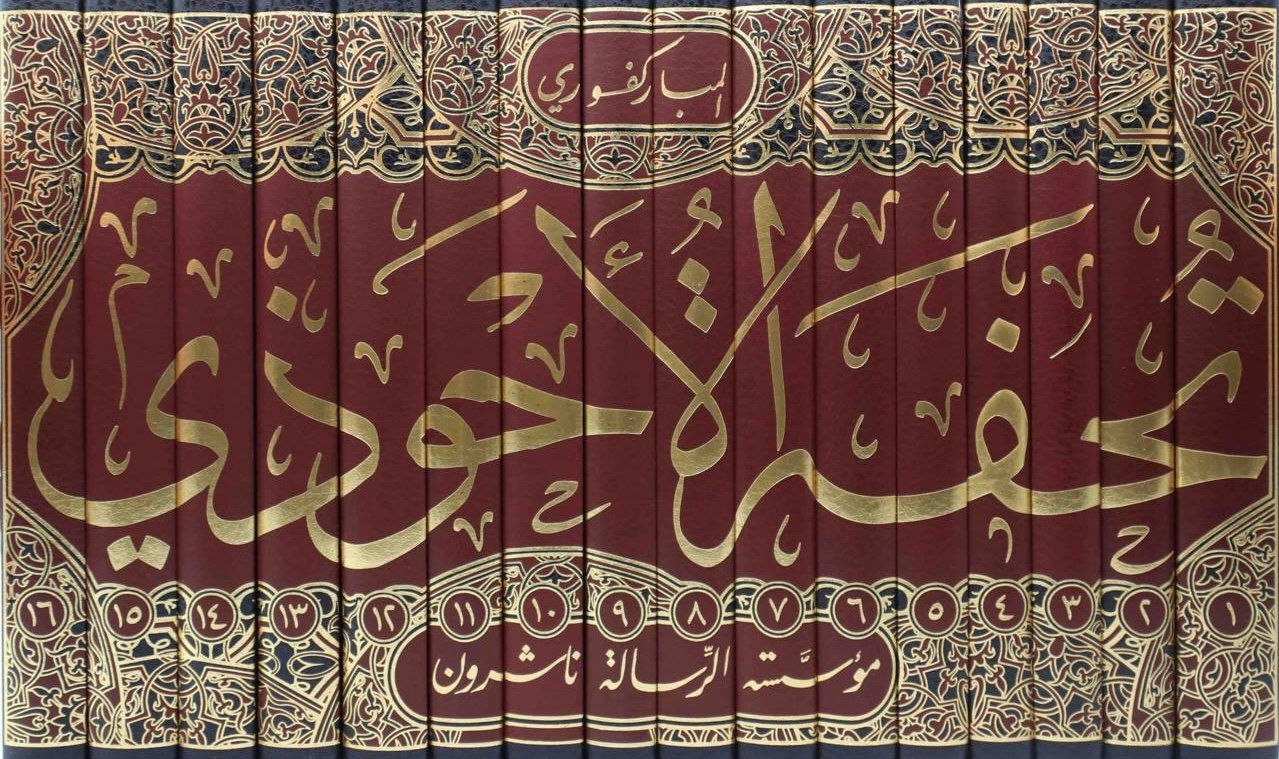 المباركفوري
تحفة الأحوذي
١ ٢ ٣ ٤ ٥ ٦ ٧ ٨ ٩ ١٠ ١١ ١٢ ١٣ ١٤ ١٥ ١٦
مؤسَّسة الرِّسالة ناشرون